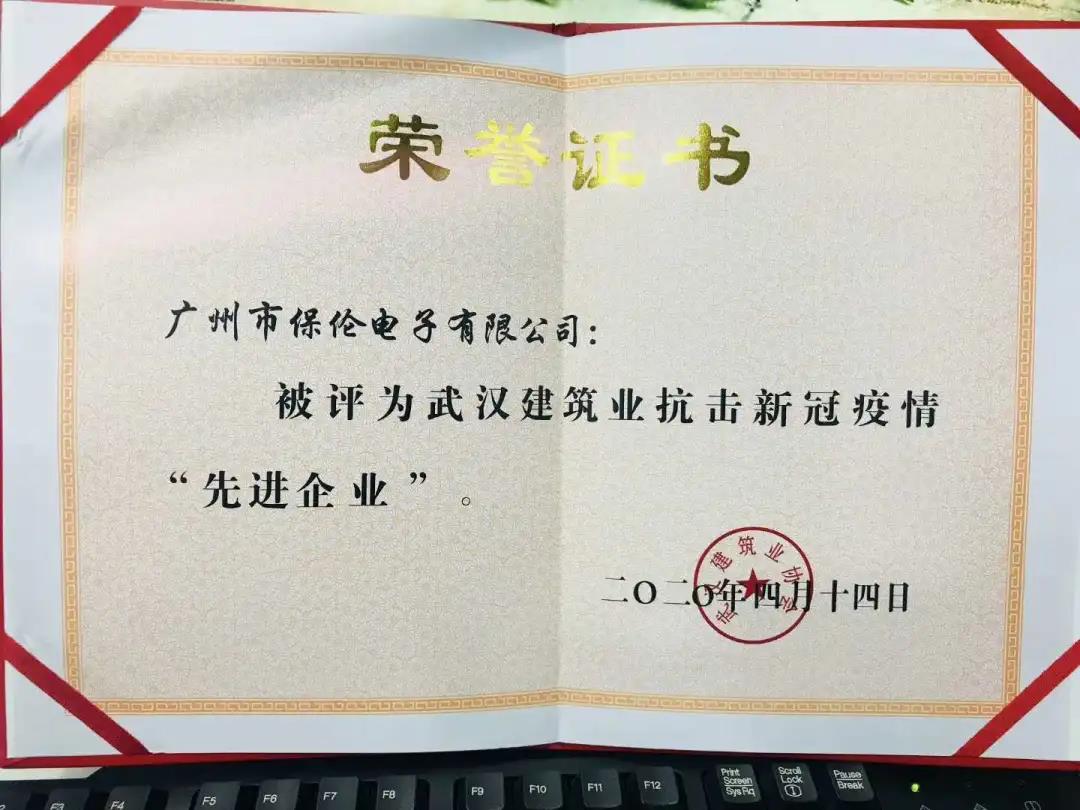 荣誉证书
广州市保伦电子有限公司：
被评为武汉建筑业抗击新冠疫情
“先进企业”。
武汉建筑业协会
二〇二〇年四月十四日
F3
F4
F5
F6
F7
F8
F9
F10
F11
F12
Print Screen SysRq
Scroll Lock
Pause Break